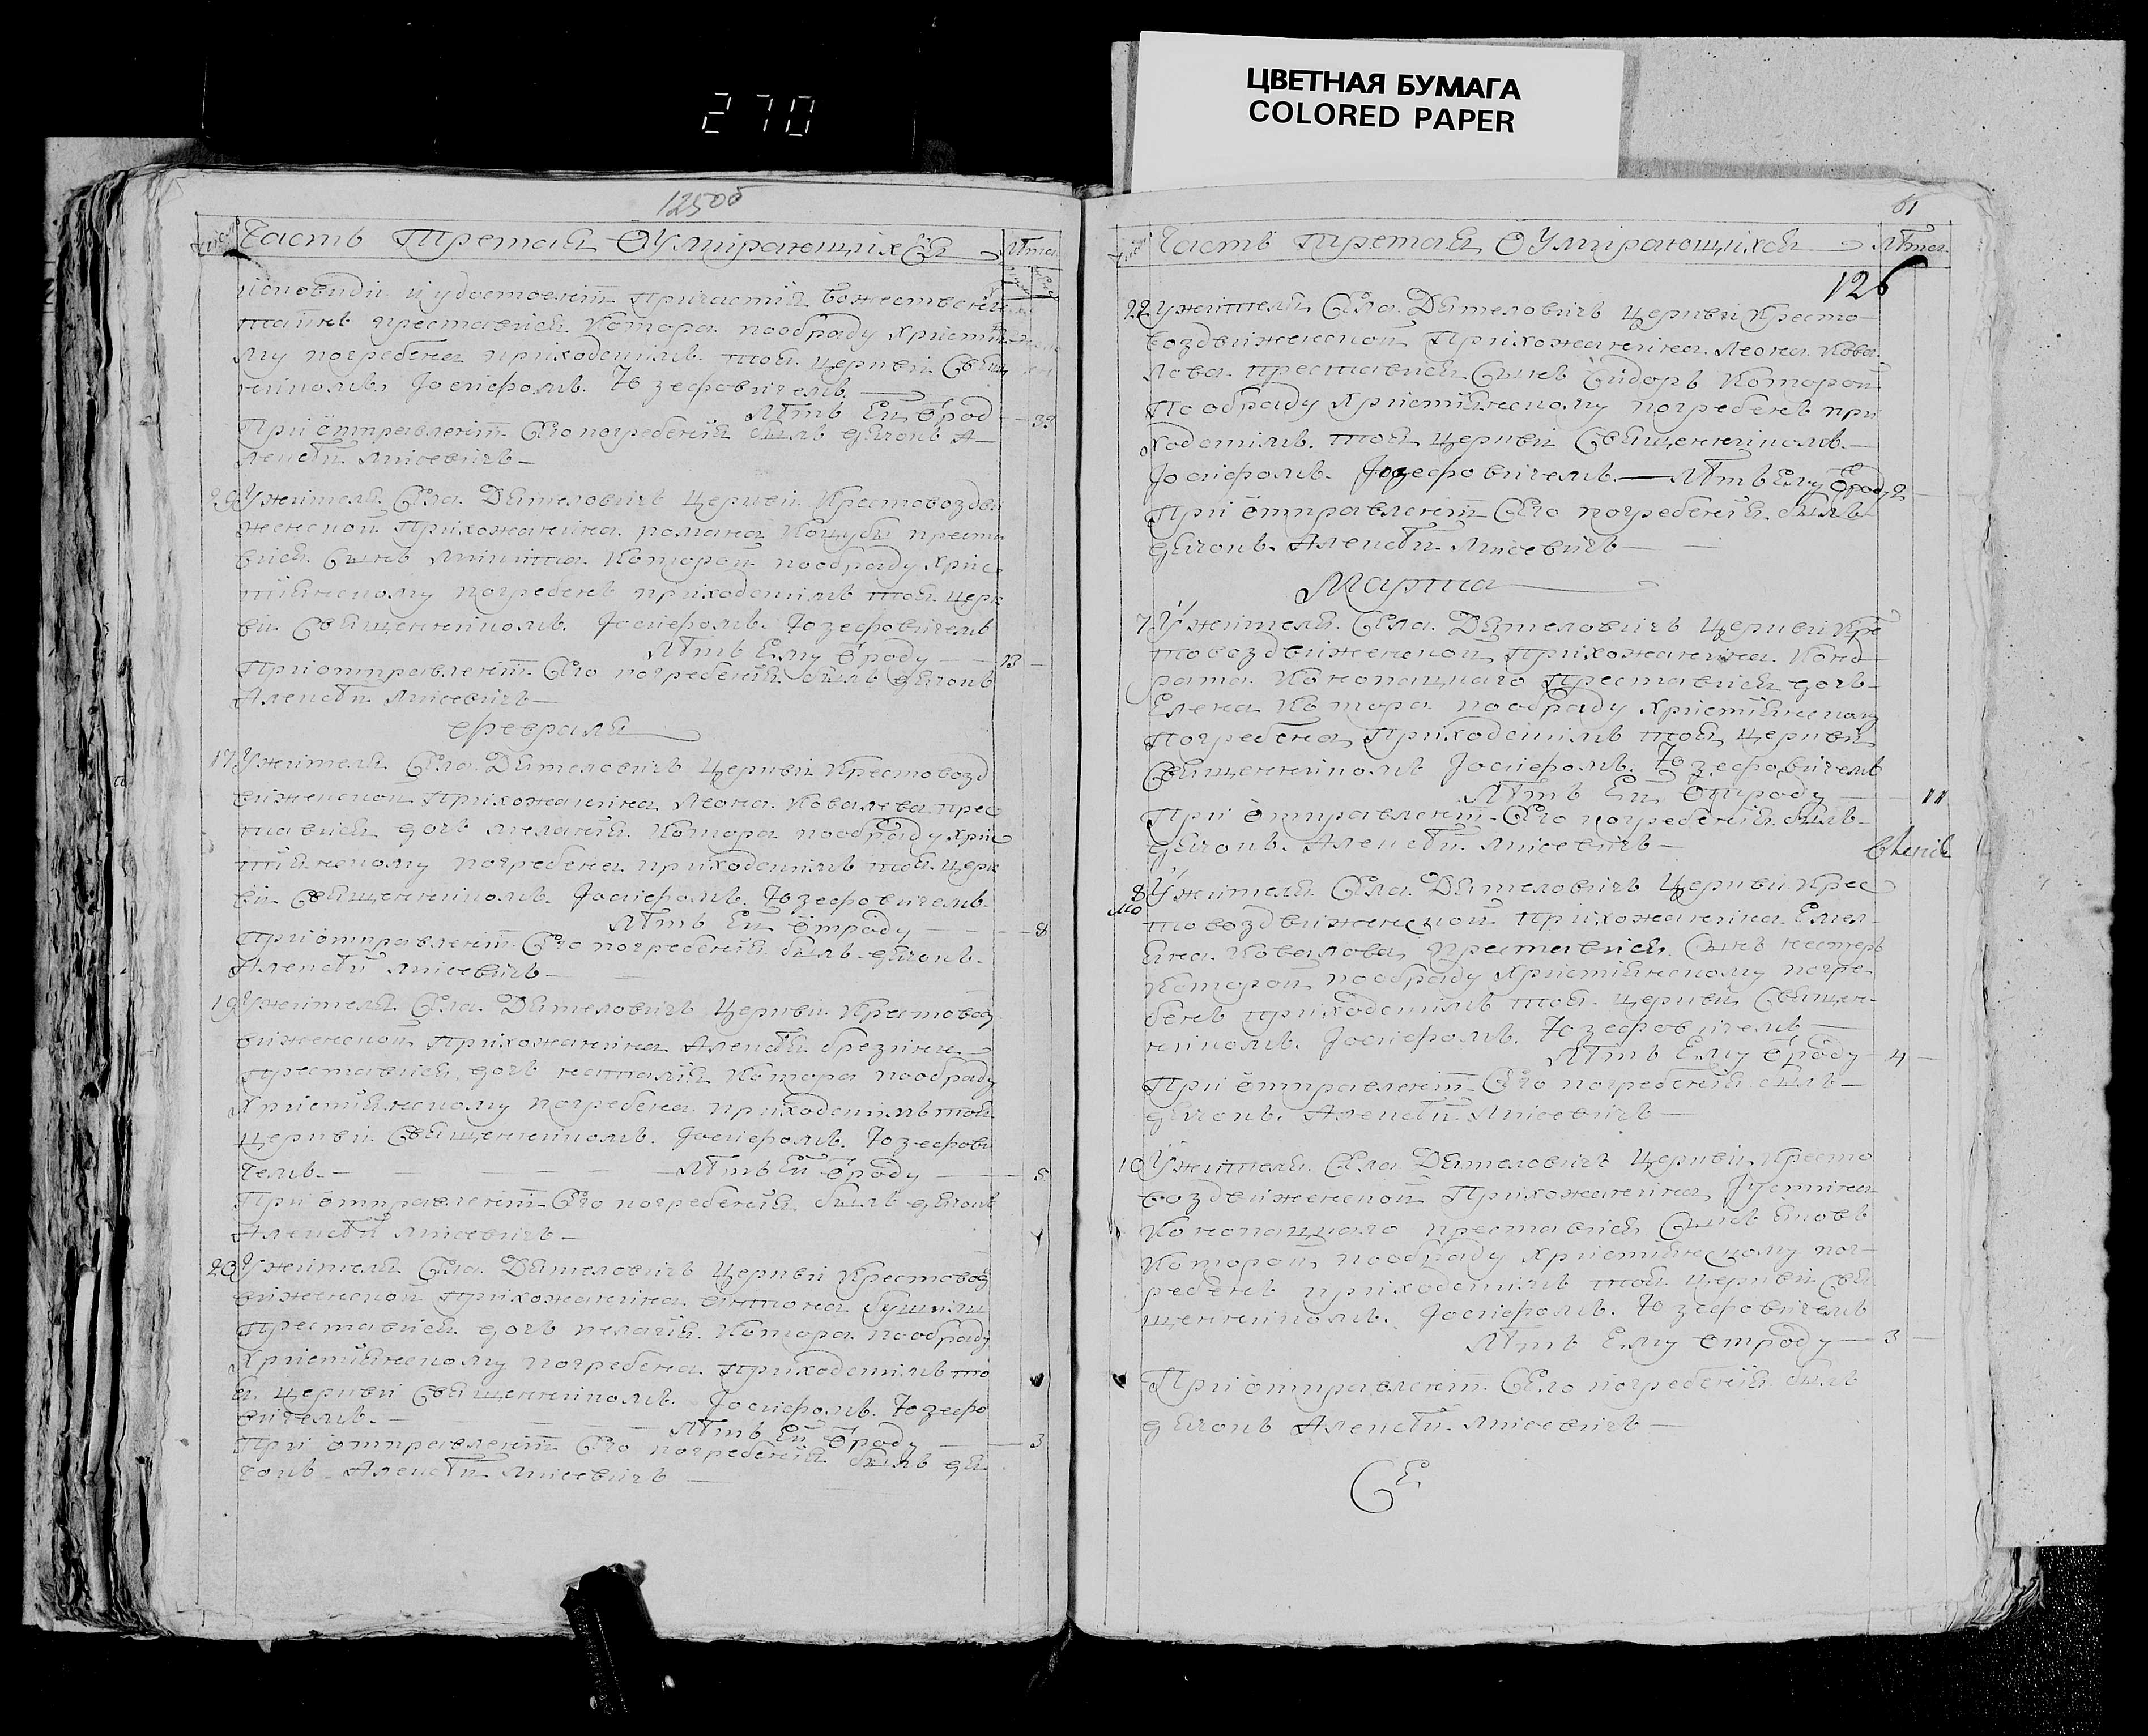 270
ЦВЕТНАЯ БУМАГА
COLORED PAPER
125об
Часть Третая О Умирающихся Лѣта
таинъ преставися Котора пообряду христи
му погребена приходскимъ тоя церкви Свящ
никомъ Іосифомъ Юзефовичемъ
Лѣтъ Ей Ѿрод 39
При ѿправленіи Сего погребенія былъ дячокъ А
лексѣй Лисевичъ
29 У жителя Села Дятеловичъ Церкви Крестовоздви
женской Прихожанина романа Коцубы преста
вися Сынъ Микита Которой пообряду Хрис
тіянскому погребенъ приходскимъ тоя церк
ви Священникомъ Іосифомъ Юзефовичемъ
Лѣтъ Ему Ѿроду 13
При отправленіи Сего погребенія былъ дячокъ
Алексѣй Лисевичъ
Февраля
17 У жителя Села Дятеловичъ Церкви Крестовозд
виженской Прихожанина Леона Ковалева прес
тавися дочь меланія Котора пообряду хрис
тіянскому погребена приходскимъ тоя церк
ви Священникомъ Іосифомъ Юзефовичемъ
Лѣтъ Ей Ѿроду 8
При отправленіи Сего погребенія былъ дячокъ
Алексѣй Лисевичъ
19 У жителя Села Дятеловичъ Церкви Крестовозд
виженской Прихожанина Алексѣя
Преставися дочь наталія Котора пообряду
Христіянскому погребена приходскимъ тоя
церкви Священникомъ Іосифомъ Юзефови
чемъ Лѣтъ Ей Ѿроду 5
При ѿправленіи Сего погребенія былъ дячокъ
Алексѣй Лисевичъ
20 У жителя Села Дятеловичъ Церкви Крестовозд
виженской Прихожанина антона
Преставися дочь пелагія Котора пообряду
Христіянскому погребена Приходскимъ то
я церкви Священникомъ Іосифомъ Юзефо
вичемъ Лѣтъ Ей Ѿроду 3
При отправленіи Сего погребенія былъ дя
чокъ Алексѣй Лисевичъ
61
Часть третая О Умирающихся Лѣта
126
22 У жителя Села Дятеловичъ Церкви Кресто
воздвиженской Прихожанина Леона Кова
лова преставися Сынъ Сидоръ Которой
По обряду Христіянскому погребенъ при
ходскимъ тоя церкви Священникомъ
Іосифомъ Юзефовичемъ Лѣтъ Ему Ѿроду 2
При ѿправленіи Сего погребенія былъ
дячокъ Алексѣй Лисевичъ
Марта
7 У жителя Села Дятеловичъ Церкви Кре
товоздвиженской Прихожанина Конд
рата Конопацкаго Преставися дочь
Елена Котора пообряду Христіянскому
Погребена Приходскимъ тоя Церкви
Священникомъ Іосифомъ Юзефовичемъ
Лѣтъ Ей Ѿроду 11
При ѿправленіи Сего погребенія былъ
дячокъ Алексѣй Лисевичъ
8 У жителя Села Дятеловичъ Церкви Крес
товоздвиженской прихожанина Емел
яна Ковалова Преставися Сынъ нестеръ
Которой пообряду Христіянскому погре
бенъ приходскимъ тоя церкви Священ
никомъ Іосифомъ Юзефовичемъ
Лѣтъ Ему Ѿроду 4
При ѿправленіи Сего погребенія былъ
дячокъ Алексѣй Лисевичъ
10 У жителя Села Дятеловичъ Церкви Кресто
воздвиженской Прихожанина Іустина
Конопацкаго преставися Сынъ яковъ
Которой пообряду христіянскому пог
ребенъ приходскимъ тоя церкви Свя
щенникомъ Іосифомъ Юзефовичемъ
Лѣтъ Ему Ѿроду 3
При ѿправленіи Сего погребенія былъ
дячокъ Алексѣй Лисевичъ